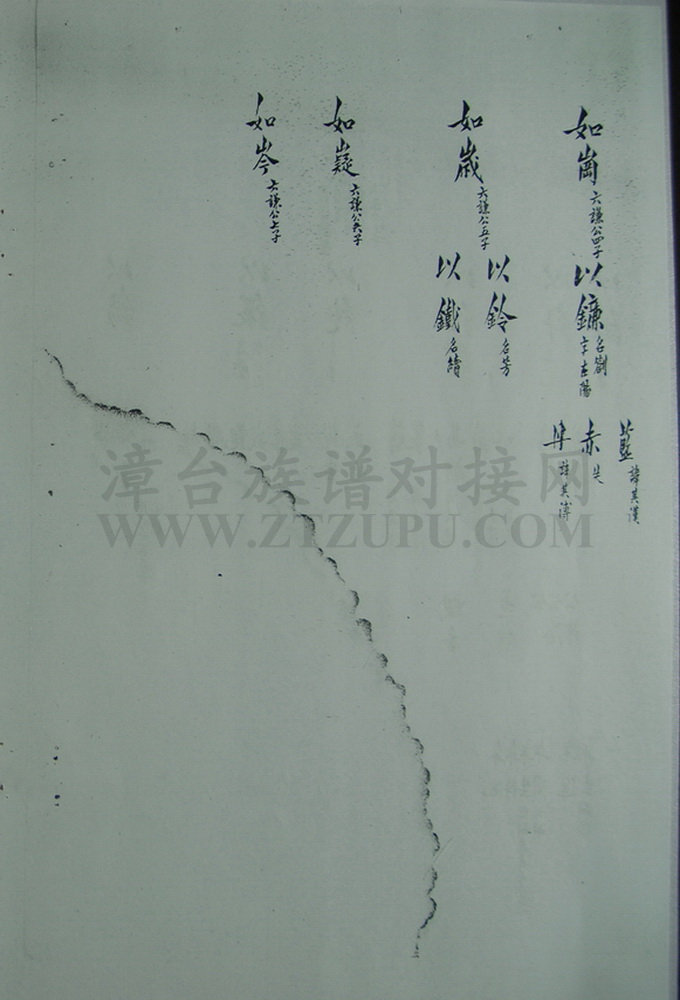 如崗 六謙公四子
以鐮 名劄 字在陽
藍 諱其漢
赤 失
準 諱其溥
如嵗 六謙公五子
以鈴 名芳
以鐵 名續
如嶷 六謙公六子
如岑 六謙公七子
漳台族谱对接网
WWW.ZTZUPU.COM